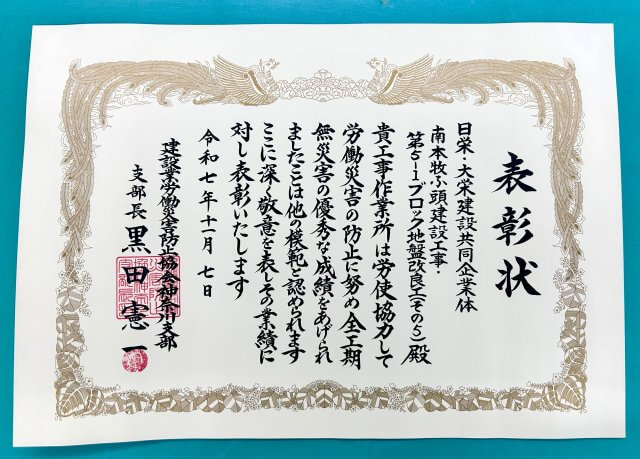 表彰状
日栄・大栄建設共同企業体
南本牧ふ頭建設工事・
第5-1ブロック地盤改良工(その5) 殿
貴工事作業所は労使協力して
労働災害の防止に努め全工期
無災害の優秀な成績をあげられ
ましたことは他の模範と認められます
ここに深く敬意を表しその業績に
対し表彰いたします
令和七年十一月七日
建設業労働災害防止協会神奈川支部
支部長 黒田憲一